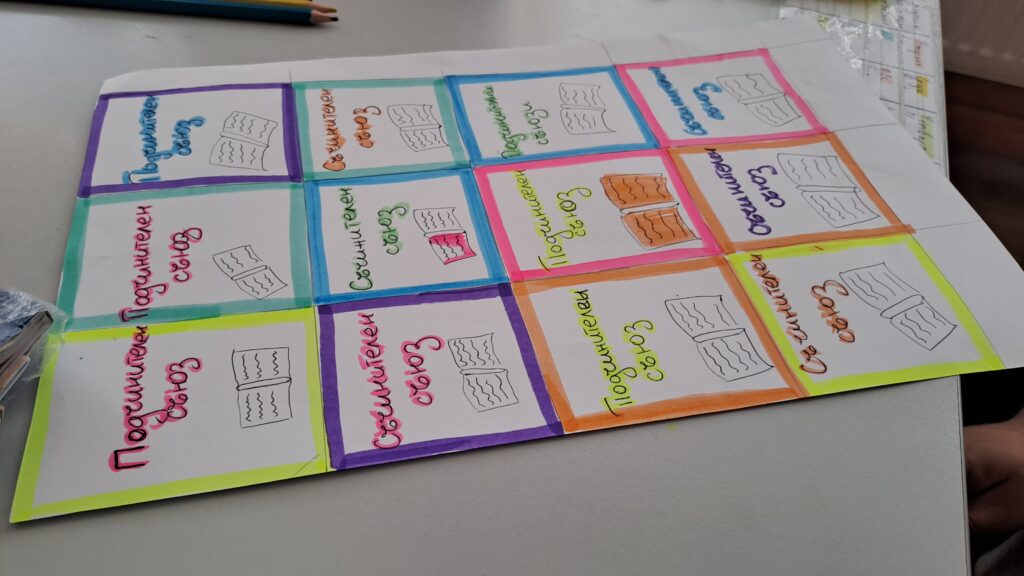 Подчинителен
съюз
Подчинителен
съюз
Подчинителен
съюз
Съчинителен
съюз
Съчинителен
съюз
Съчинителен
съюз
Подчинителен
съюз
Подчинителен
съюз
Подчинителни
съюзи
Съчинителен
съюз
Съчинителен
съюз
Съчинителен
съюз